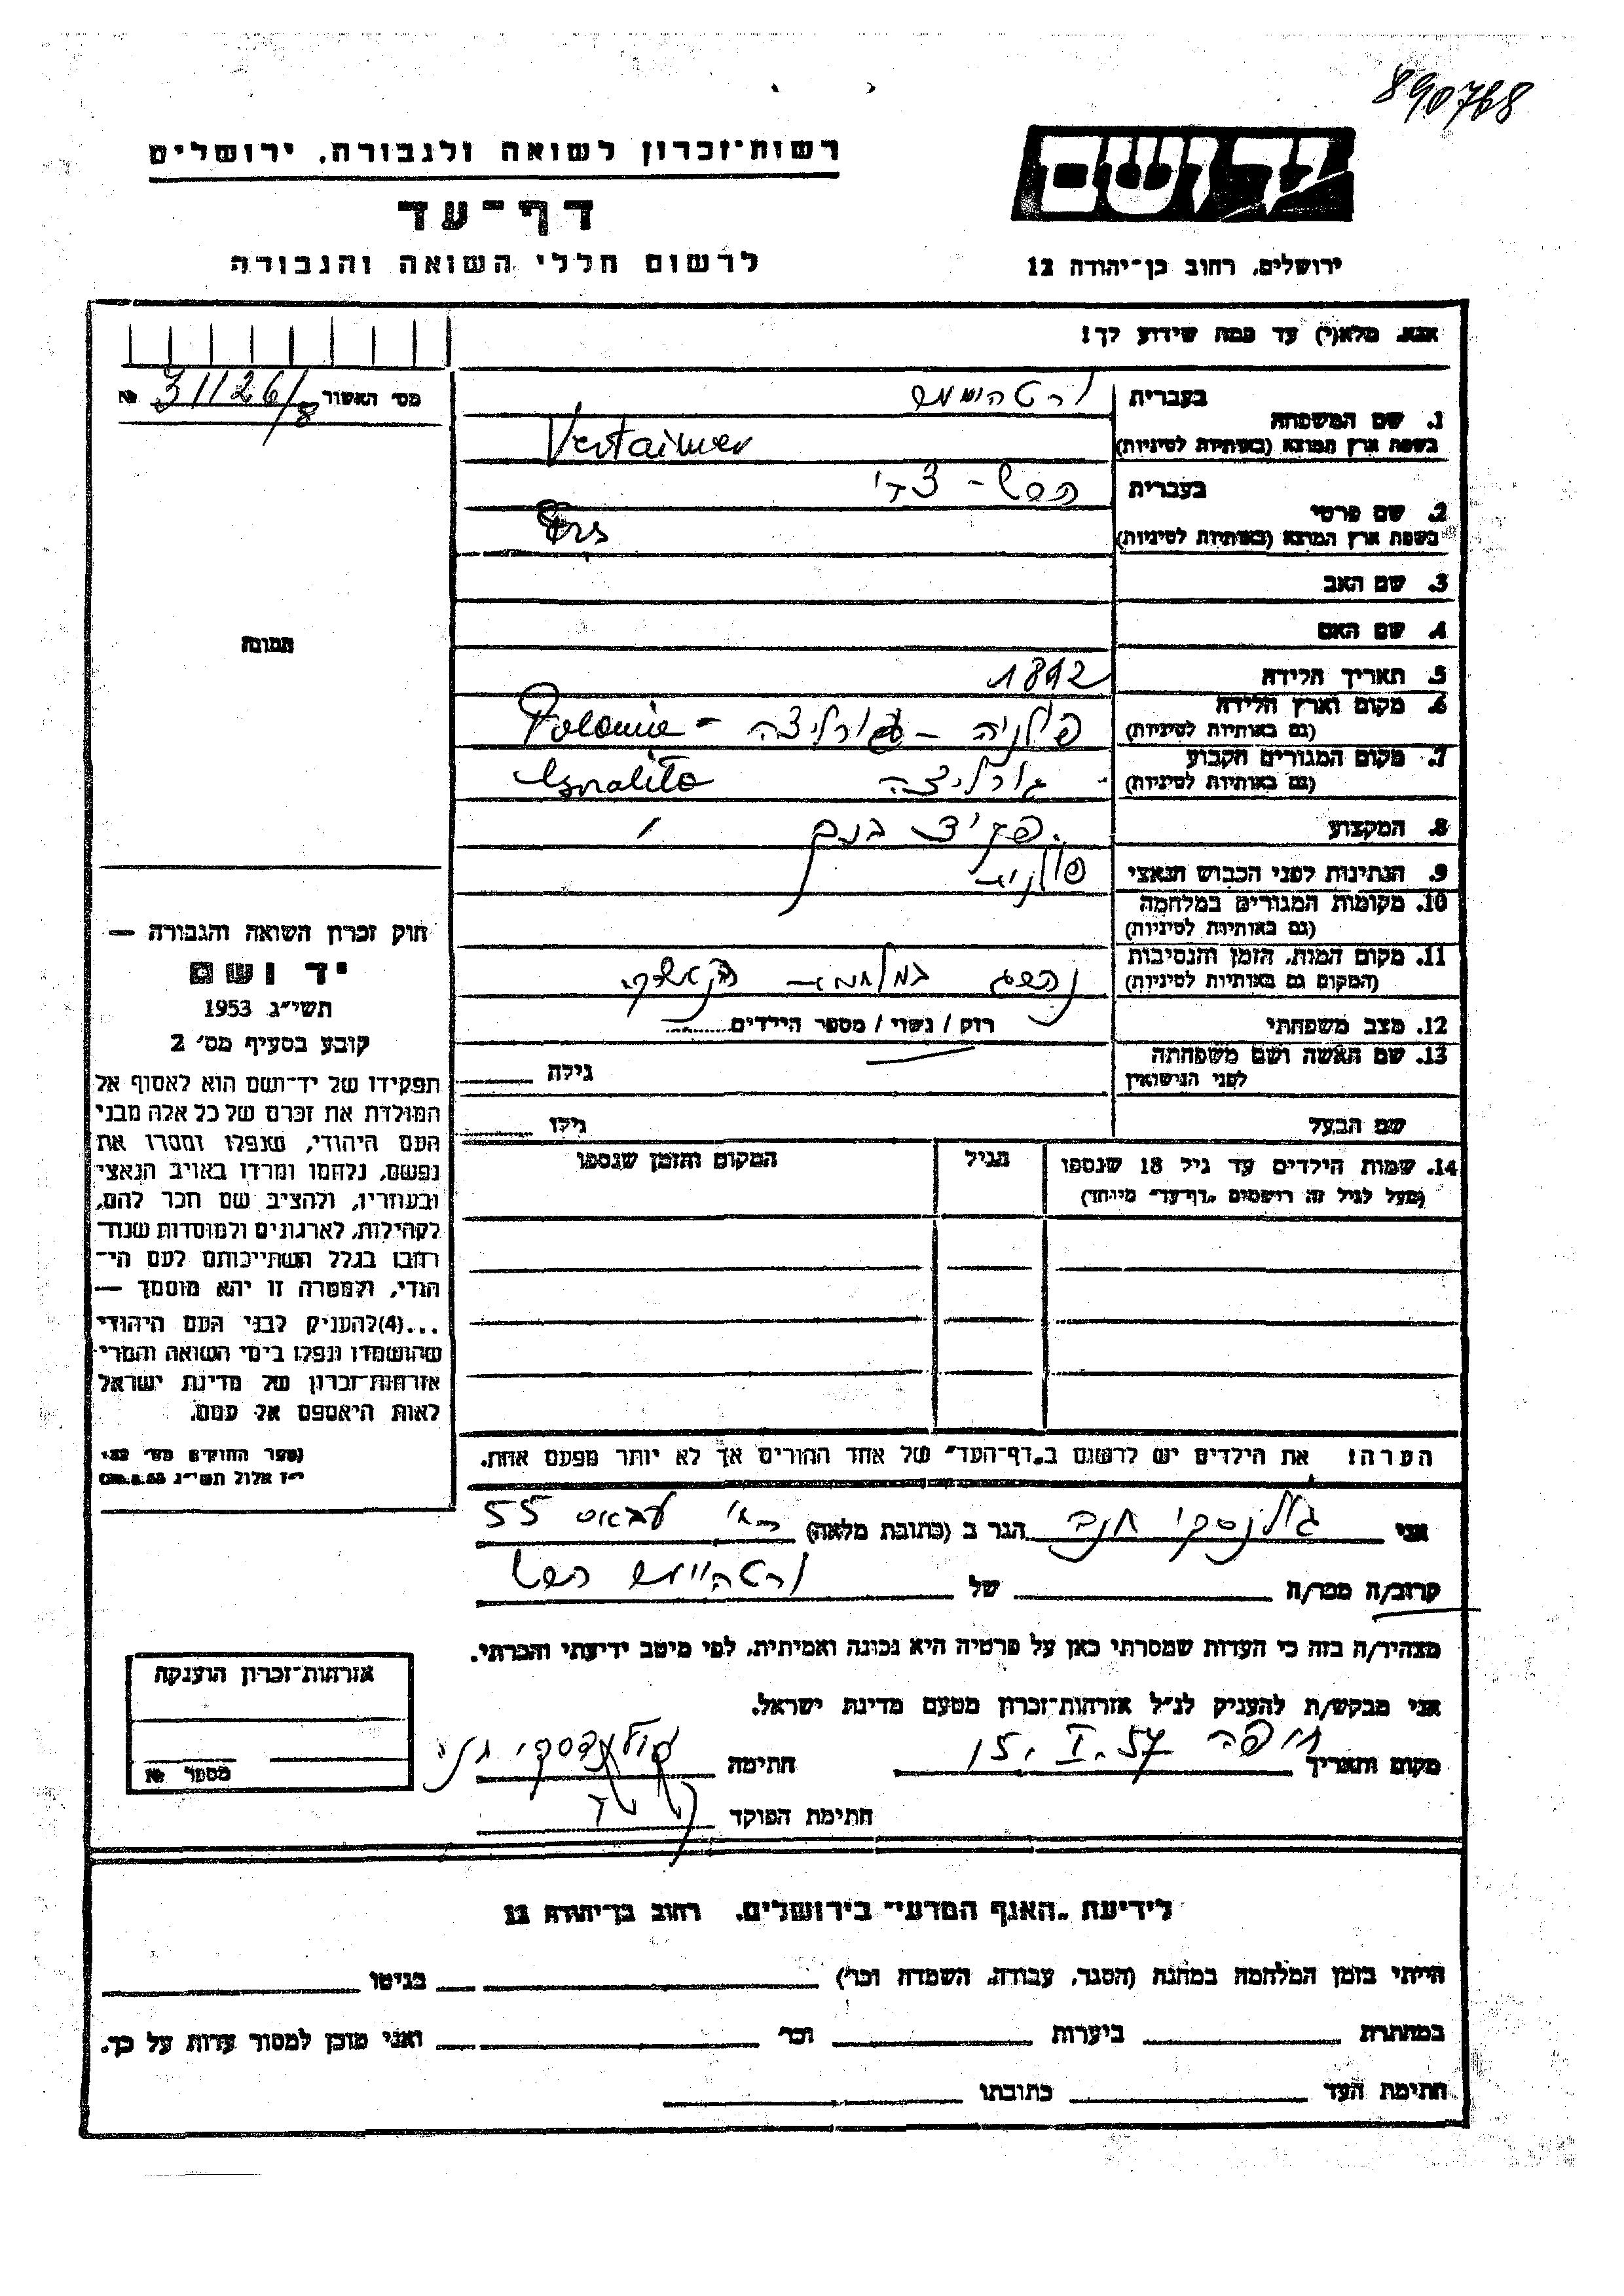 890768
רשות־זכרון לשואה ולגבורה, ירושלים
דף־עד
לרשום חללי השואה והגבורה
ידושם
ירושלים, רחוב בן־יהודה 12
אנא, מלא(י) עד כמה שידוע לך!
מס׳ האשור 31126/8 №
1. שם המשפחה
בעברית ורטהימר
בשפת ארץ המוצא (באותיות לטיניות) Vertaimer
2. שם פרטי
בעברית הרש - צדי
בשפת ארץ המוצא (באותיות לטיניות)
3. שם האב
4. שם האם
5. תאריך הלידה 1892
6. מקום וארץ הלידה
(גם באותיות לטיניות) פולניה - גורליצה - Polonia
7. מקום המגורים הקבוע
(גם באותיות לטיניות) גורליצה
8. המקצוע
9. הנתינות לפני הכבוש הנאצי פולנית
10. מקומות המגורים במלחמה
(גם באותיות לטיניות)
11. מקום המות, הזמן והנסיבות
(המקום גם באותיות לטיניות) נהרג במלחמה
12. מצב משפחתי רוק / נשוי / מספר הילדים
13. שם האשה ושם משפחתה
לפני הנישואין
גילה
שם הבעל
גילו
14. שמות הילדים עד גיל 18 שנספו
(מעל לגיל זה רושמים „דף־עד״ מיוחד)
הגיל
המקום והזמן שנספו
תמונה
חוק זכרון השואה והגבורה —
יד ושם
תשי״ג 1953
קובע בסעיף מס׳ 2
תפקידו של יד־ושם הוא לאסוף אל
המולדת את זכרם של כל אלה מבני
העם היהודי, שנפלו ומסרו את
נפשם, נלחמו ומרדו באויב הנאצי
ובעוזריו, ולהציב שם וזכר להם,
לקהילות, לארגונים ולמוסדות שנח־
רבו בגלל השתייכותם לעם הי־
הודי, ולמטרה זו יהא מוסמך —
...(4)להעניק לבני העם היהודי
שהושמדו ונפלו בימי השואה והמרי־
אזרחות־זכרון של מדינת ישראל
לאות היאספם אל עמם.
(ספר החוקים מס׳ 132,
י״ז אלול תשי״ג 28.8.53)
הערה! את הילדים יש לרשום ב„דף־העד״ של אחד ההורים אך לא יותר מפעם אחת.
אני גולנסקי חנה הגר ב (כתובת מלאה) עבאס 55
קרוב/ה מכר/ה של ורטהיימר הרש
מצהיר/ה בזה כי העדות שמסרתי כאן על פרטיה היא נכונה ואמיתית, לפי מיטב ידיעתי והכרתי.
אני מבקש/ת להעניק לנ״ל אזרחות־זכרון מטעם מדינת ישראל.
מקום ותאריך חיפה 15.I.57 חתימה
חתימת הפוקד
אזרחות־זכרון הוענקה
מספר №
לידיעת „האגף המדעי״ בירושלים, רחוב בן־יהודה 12
הייתי בזמן המלחמה במחנה (הסגר, עבודה, השמדה וכר׳) בגיטו
במחתרת ביערות וכר׳ ואני מוכן למסור עדות על כך.
חתימת העד כתובתו